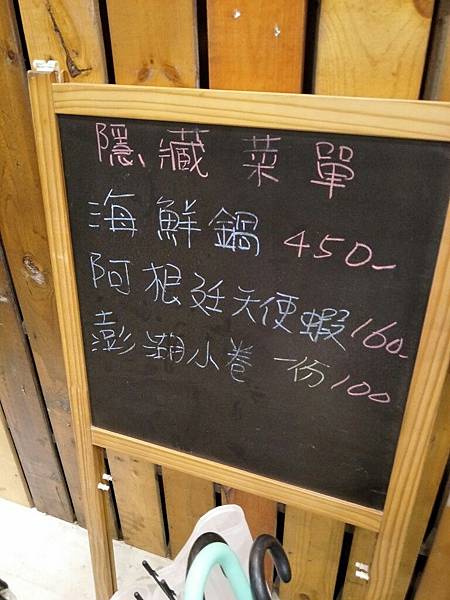 隱藏菜單
海鮮鍋 450-
阿根廷天使蝦 160-
澎湖小卷 一份 100